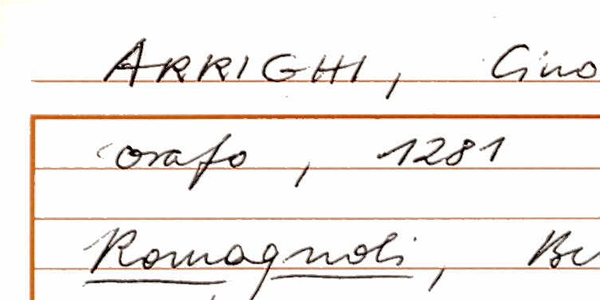 ARRIGHI, Cino
orafo, 1281
Romagnoli,